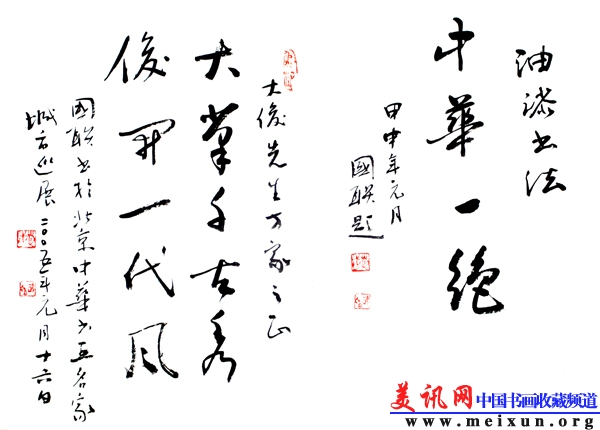 油漆书法
中華一绝
甲申年元月
國联題
大俊先生方家之正
大笔千古秀
俊开一代风
國联书於北京中華书画名家
城市巡展二〇〇五年元月十六日
美讯网 中国书画收藏频道
www.meixun.org